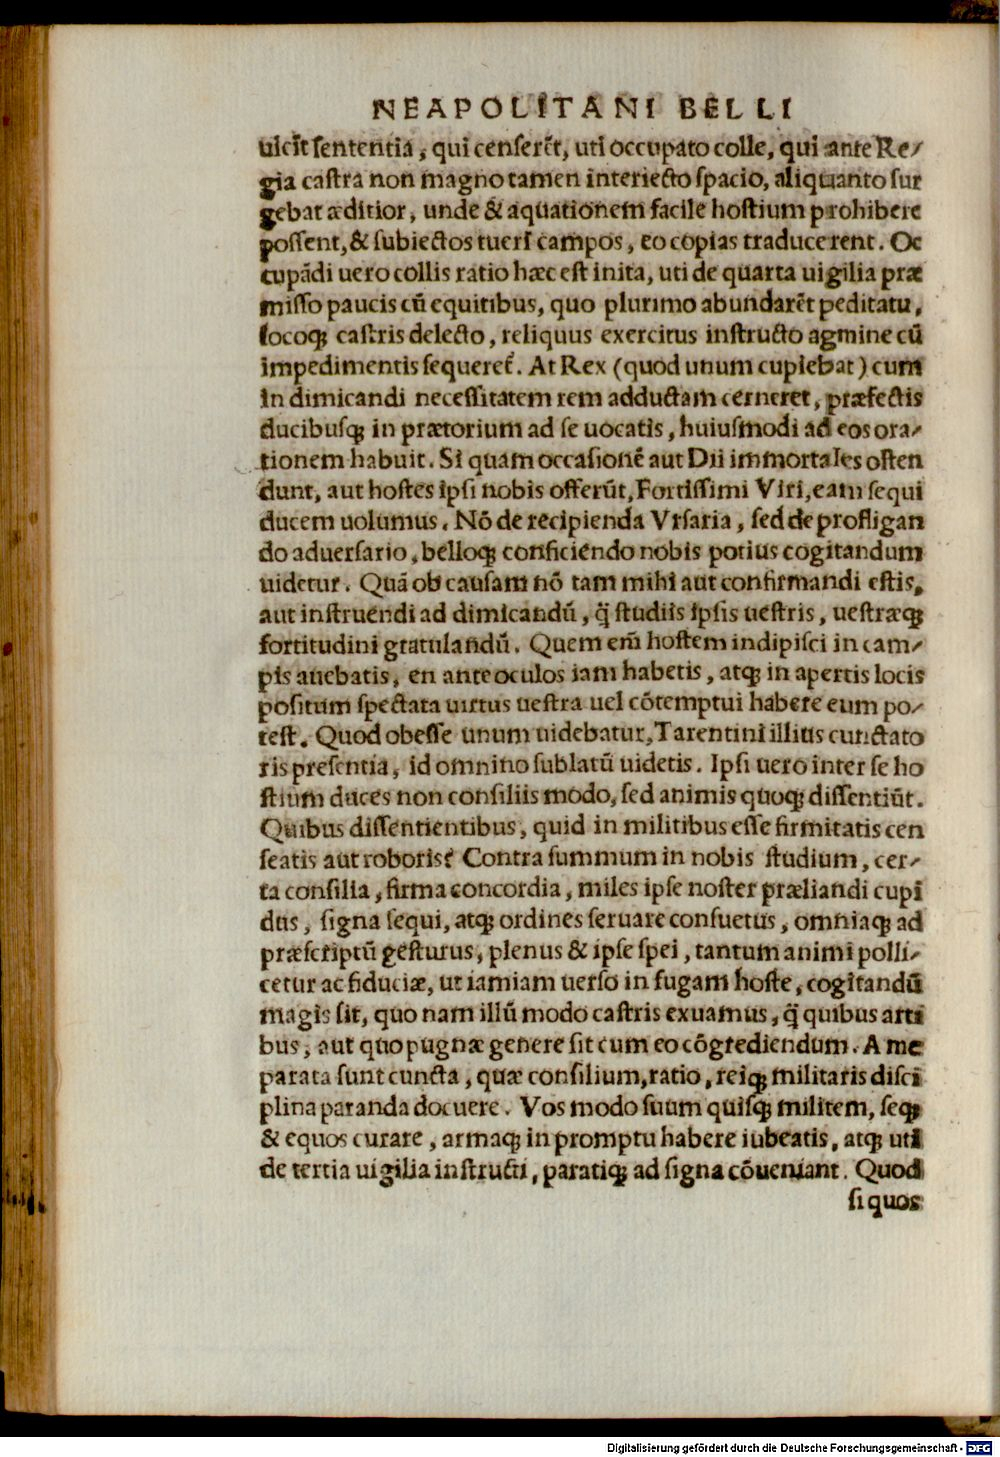 NEAPOLITANI BELLI
uicīt sententia, qui censerēt, uti occupato colle, qui ante Re-
gia castra non magno tamen interiecto spacio, aliquanto sur
gebat æditior, unde & aquationem facile hostium prohibere
possent, & subiectos tueri campos, eo copias traducerent. Oc
cupādi uero collis ratio hæc est inita, uti de quarta uigilia præ
misso paucis cū equitibus, quo plurimo abundarēt peditatu,
locoq; castris delecto, reliquus exercitus instructo agmine cū
impedimentis sequeret̃. At Rex (quod unum cupiebat) cum
in dimicandi necessitatem rem adductam cerneret, præfectis
ducibusq; in prætorium ad se uocatis, huiusmodi ad eos ora-
tionem habuit. Si quam occasionē aut Dii immortales osten
dunt, aut hostes ipsi nobis offerūt, Fortissimi Viri, eam sequi
ducem uolumus. Nō de recipienda Vrsaria, sed de profligan
do aduersario, belloq; conficiendo nobis potius cogitandum
uidetur. Quā ob causam nō tam mihi aut confirmandi estis,
aut instruendi ad dimicandū, q̄ studiis ipsis uestris, uestræq;
fortitudini gratulandū. Quem em̄ hostem indipisci in cam-
pis auebatis, en ante oculos iam habetis, atq; in apertis locis
positum spectata uirtus uestra uel cōtemptui habere eum po-
test. Quod obesse unum uidebatur, Tarentini illius cunctato
ris presentia, id omnino sublatū uidetis. Ipsi uero inter se ho
stium duces non consiliis modo, sed animis quoq; dissentiūt.
Quibus dissentientibus, quid in militibus esse firmitatis cen
seatis aut roboris? Contra summum in nobis studium, cer-
ta consilia, firma concordia, miles ipse noster præliandi cupi
dus, signa sequi, atq; ordines seruare consuetus, omniaq; ad
præscriptū gesturus, plenus & ipse spei, tantum animi polli-
cetur ac fiduciæ, ut iamiam uerso in fugam hoste, cogitandū
magis sit, quo nam illū modo castris exuamus, q̄ quibus arti
bus, aut quo pugnæ genere sit cum eo cōgrediendum. A me
parata sunt cuncta, quæ consilium, ratio, reiq; militaris disci
plina paranda docuere. Vos modo suum quisq; militem, seq;
& equos curare, armaq; in promptu habere iubeatis, atq; uti
de tertia uigilia instructi, paratiq; ad signa cōueniant. Quod
si quos
Digitalisierung gefördert durch die Deutsche Forschungsgemeinschaft - DFG